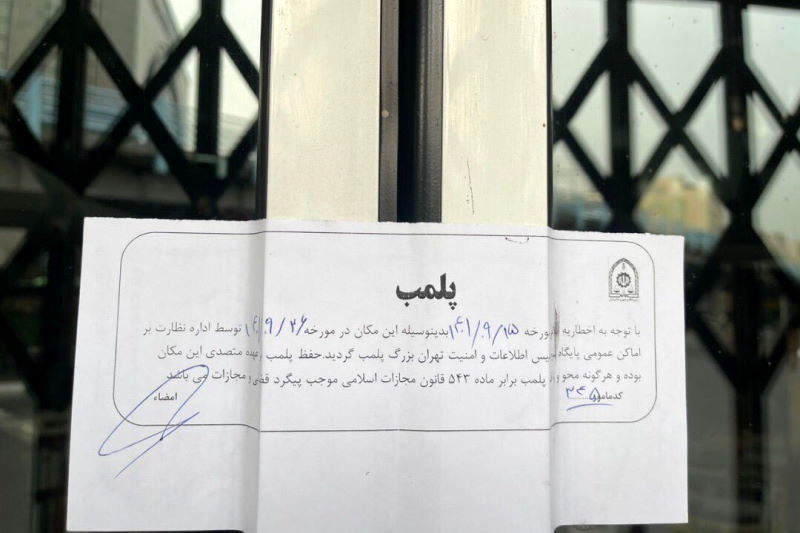 پلمب
با توجه به اخطاریه مورخه ۱۴۰۱/۹/۲۵ بدینوسیله این مکان در مورخه ۱۴۰۱/۹/۲۶ توسط اداره نظارت بر
اماکن عمومی پایگاه پلیس اطلاعات و امنیت تهران بزرگ پلمب گردید. حفظ پلمب بعهده متصدی این مکان
بوده و هرگونه محو پلمب برابر ماده ۵۴۳ قانون مجازات اسلامی موجب پیگرد و مجازات می باشد
کدمامور ۲۴۵ امضاء